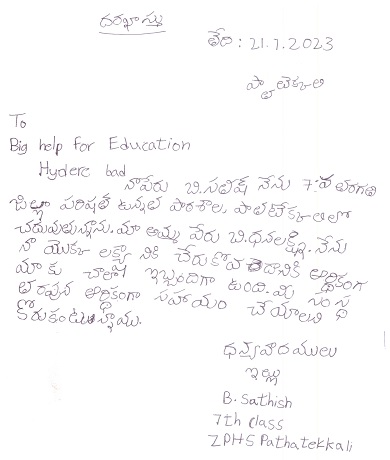 దరఖాస్తు
తేది : 21.7.2023
పాతటెక్కలి
To
Big help For Education
Hydere bad
నాపేరు బి.సతిష్ నేను 7వ తరగతి
జిల్లా పరిషత్ ఉన్నత పాఠశాల, పాతటెక్కలిలో
చదువుతున్నాను. మా అమ్మ పేరు బి.ధనలక్ష్మి. నేను
నా యొక్క లక్ష్యానికి చేరుకోవడానికి ఆర్థికంగా
మాకు చాలా ఇబ్బందిగా ఉంది. మీ సంస్థ
తరపున ఆర్థికంగా సహాయం చేయాలని
కోరుకుంటున్నాము.
ధన్యవాదములు
ఇట్లు
B. Sathish
7th class
ZPHS Pathatekkali